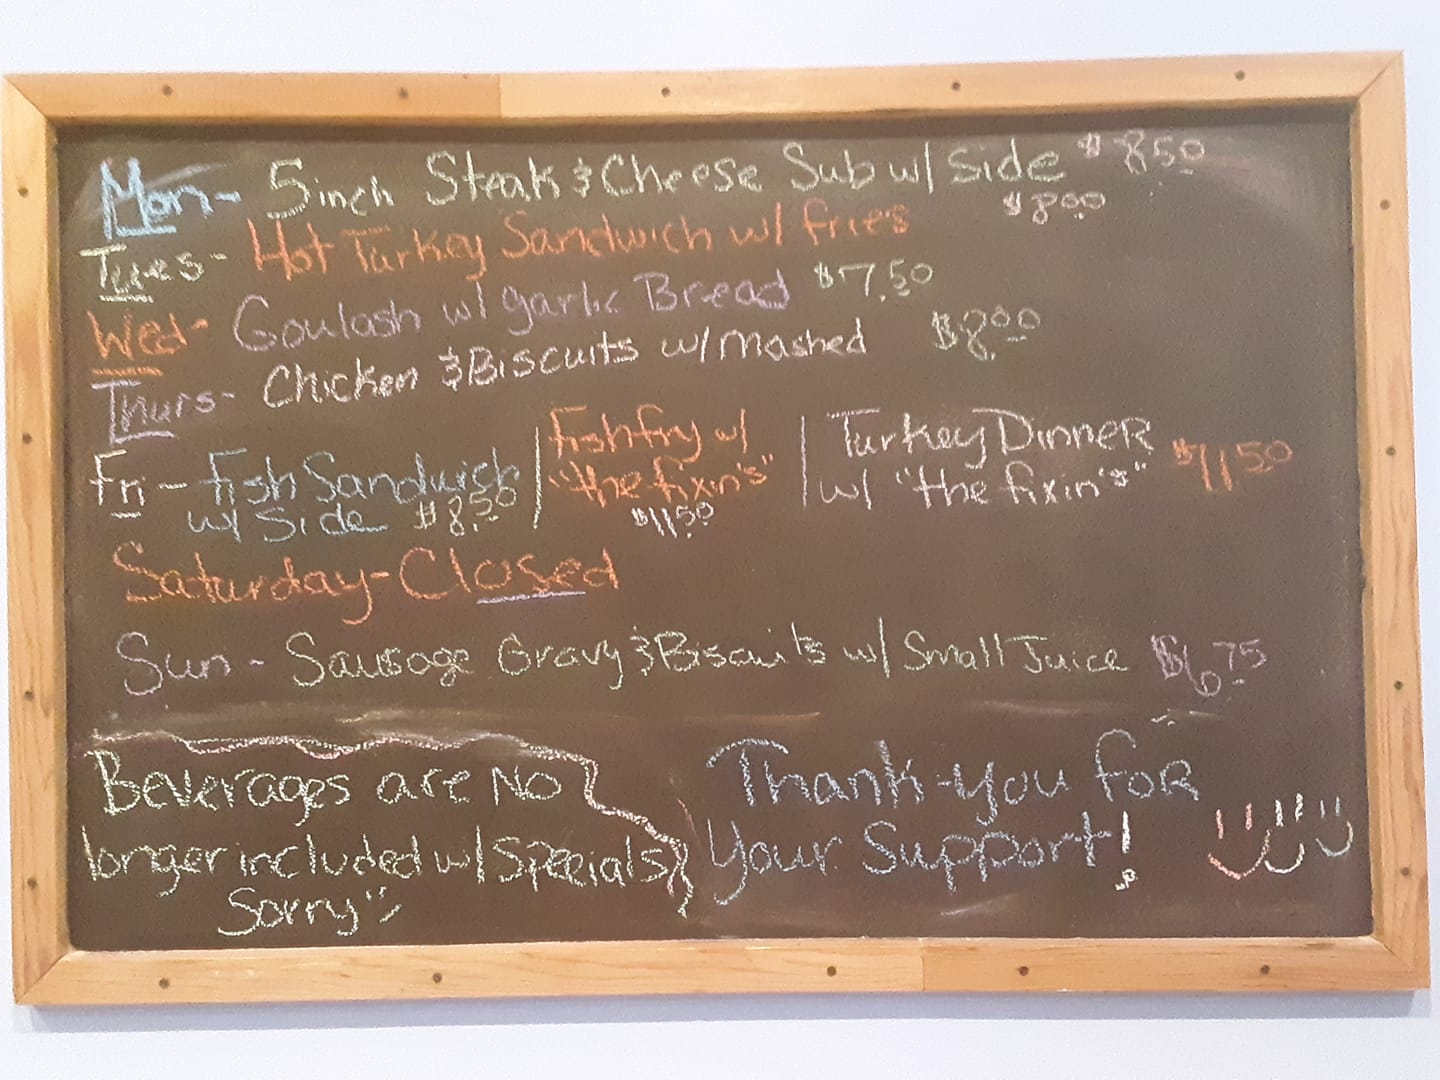 Mon- 5inch Steak & Cheese Sub w/ Side $8.50
Tues- Hot Turkey Sandwich w/ fries $8.00
Wed- Goulash w/ garlic Bread $7.50
Thurs- Chicken & Biscuits w/ mashed $8.00
Fri- Fish Sandwich
w/ Side $8.50
Fish fry w/
"the fixin's"
$11.50
Turkey Dinner
w/ "the fixin's" $11.50
Saturday-Closed
Sun- Sausage Gravy & Biscuits w/ Small Juice $6.75
Beverages are No
longer included w/ Specials
Sorry
Thank-you for
your Support!